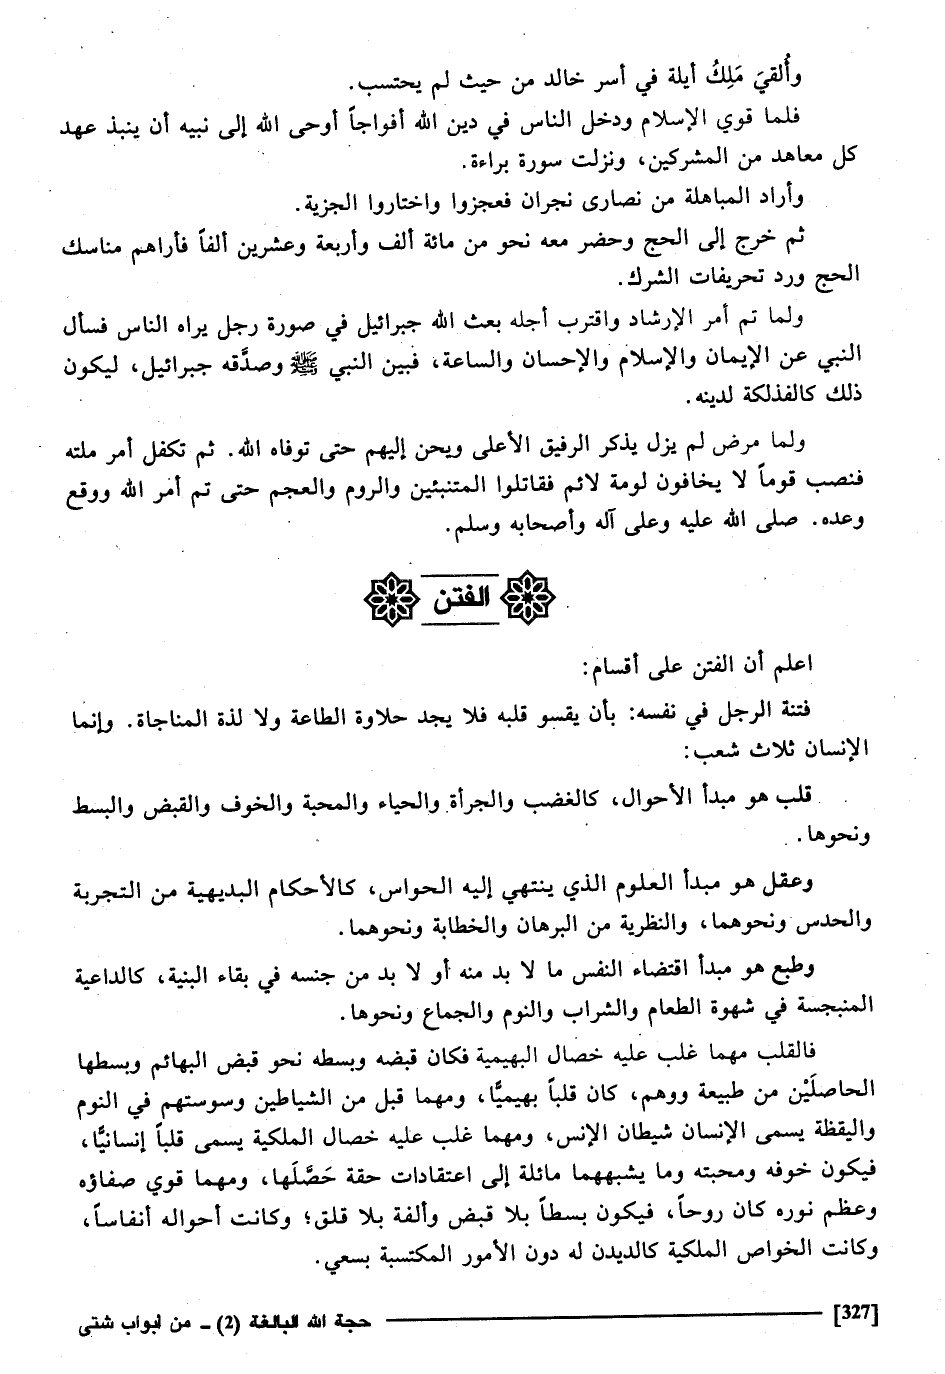 وأُلقيَ مَلِكُ أيلة في أسر خالد من حيث لم يحتسب.
فلما قوي الإسلام ودخل الناس في دين الله أفواجاً أوحى الله إلى نبيه أن ينبذ عهد
كل معاهد من المشركين، ونزلت سورة براءة.
وأراد المباهلة من نصارى نجران فعجزوا واختاروا الجزية.
ثم خرج إلى الحج وحضر معه نحو من مائة ألف وأربعة وعشرين ألفاً فأراهم مناسك
الحج ورد تحريفات الشرك.
ولما تم أمر الإرشاد واقترب أجله بعث الله جبرائيل في صورة رجل يراه الناس فسأل
النبي عن الإيمان والإسلام والإحسان والساعة، فبين النبي ﷺ وصدَّقه جبرائيل، ليكون
ذلك كالفذلكة لدينه.
ولما مرض لم يزل يذكر الرفيق الأعلى ويحن إليهم حتى توفاه الله. ثم تكفل أمر ملته
فنصب قوماً لا يخافون لومة لائم فقاتلوا المتنبئين والروم والعجم حتى تم أمر الله ووقع
وعده. صلى الله عليه وعلى آله وأصحابه وسلم.
الفتن
اعلم أن الفتن على أقسام:
فتنة الرجل في نفسه: بأن يقسو قلبه فلا يجد حلاوة الطاعة ولا لذة المناجاة. وإنما
الإنسان ثلاث شعب:
قلب هو مبدأ الأحوال، كالغضب والجرأة والحياء والمحبة والخوف والقبض والبسط
ونحوها.
وعقل هو مبدأ العلوم الذي ينتهي إليه الحواس، كالأحكام البديهية من التجربة
والحدس ونحوهما، والنظرية من البرهان والخطابة ونحوهما.
وطبع هو مبدأ اقتضاء النفس ما لا بد منه أو لا بد من جنسه في بقاء البنية، كالداعية
المنبجسة في شهوة الطعام والشراب والنوم والجماع ونحوها.
فالقلب مهما غلب عليه خصال البهيمية فكان قبضه وبسطه نحو قبض البهائم وبسطها
الحاصلَيْن من طبيعة ووهم، كان قلباً بهيميًّا، ومهما قبل من الشياطين وسوستهم في النوم
واليقظة يسمى الإنسان شيطان الإنس، ومهما غلب عليه خصال الملكية يسمى قلباً إنسانيًّا،
فيكون خوفه ومحبته وما يشبههما مائلة إلى اعتقادات حقة حَصَّلَها، ومهما قوي صفاؤه
وعظم نوره كان روحاً، فيكون بسطاً بلا قبض وألفة بلا قلق؛ وكانت أحواله أنفاساً،
وكانت الخواص الملكية كالديدن له دون الأمور المكتسبة بسعي.
[327] حجة الله البالغة (2) - من أبواب شتى